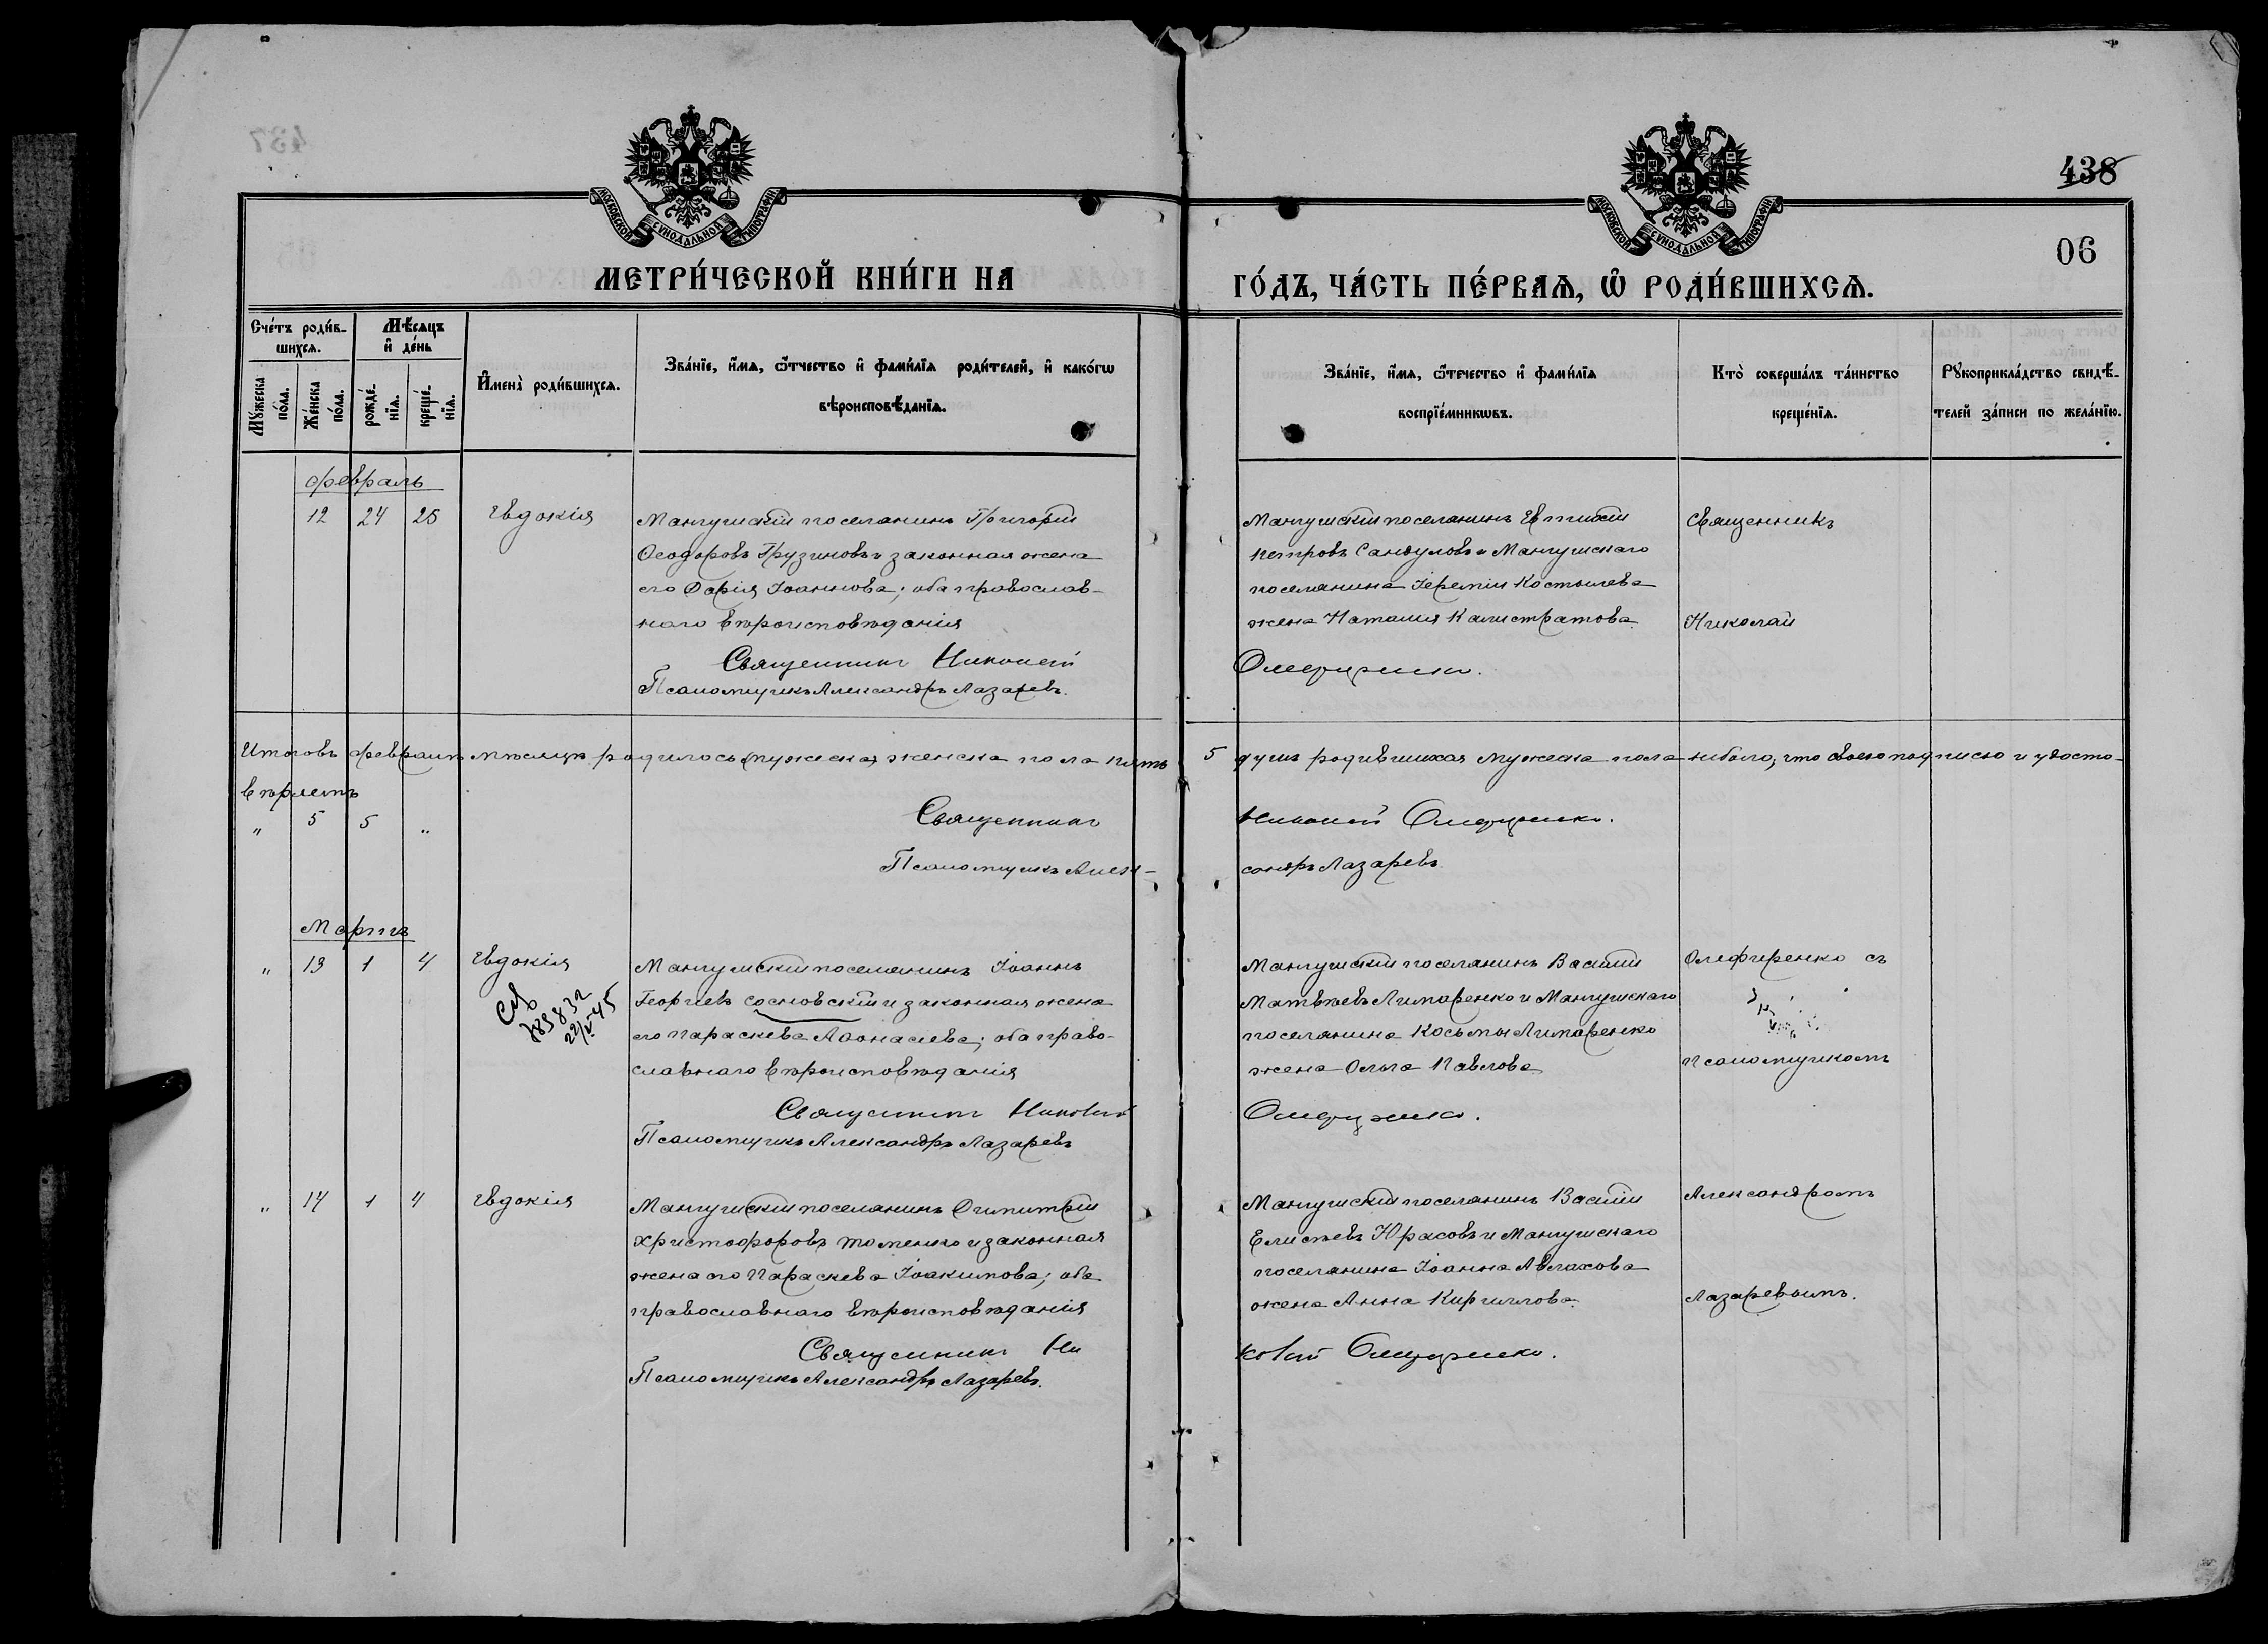 437
438
06
МОСКОВСКОЙ СѴНОДАЛЬНОЙ ТИПОГРАФІИ
МОСКОВСКОЙ СѴНОДАЛЬНОЙ ТИПОГРАФІИ
МЕТРИ́ЧЕСКОЙ КНИ́ГИ НА
ГО́ДЪ, ЧА́СТЬ ПЕ́РВАѦ, Ѽ РОДИ́ВШИХСѦ.
Сче́тъ роди́в-
шихсѧ.
Мꙋжеска по́ла.
Же́нска по́ла.
Мѣ́сѧцъ и҆ де́нь
рожде́-
нїѧ.
креще́-
нїѧ.
И҆мена̀ роди́вшихсѧ.
Зва́нїе, и҆́мѧ, ѻ҆́тчество и҆ фами́лїѧ роди́телей, и҆ како́гѡ
вѣроисповѣ́данїѧ.
Зва́нїе, и҆́мѧ, ѻ҆́течество и҆ фами́лїѧ
воспрїе́мникѡвъ.
Кто̀ соверша́лъ та́инство
креще́нїѧ.
Рꙋкоприкла́дство свидѣ́-
телей за́писи по жела́нїю.
Февраль
12 24 25 Евдокія
Мангушскій поселянинъ Григорій
Ѳеодоровъ Грузиновъ и законная жена
его Дарія Іоаннова; оба православ-
наго вѣроисповѣданія
Священникъ Николай
Псаломщикъ Александръ Лазаревъ.
Мангушскій поселянинъ Евтихій
Петровъ Сандуловъ и Мангушскаго
поселянина Іереміи Костылева
жена Наталия Калистратова
Олефиренко.
Священникъ
Николай
Итого въ Февралѣ мѣсяцѣ родилось (мужеска) женска пола пять 5 душъ родившихся мужеска пола небыло, что своею подписью и удосто-
вѣряемъ
" 5 5 "
Священникъ Николай Олефиренко.
Псаломщикъ Алек-
сандръ Лазаревъ
Мартъ
" 13 1 4 Евдокія
22/V 45
Мангушскій поселянинъ Іоаннъ
Георгіевъ Сосновскій и законная жена
его Параскева Аѳонасиева; оба право-
славнаго вѣроисповѣданія
Священникъ Николай
Псаломщикъ Александръ Лазаревъ
Мангушскій поселянинъ Василій
Матвѣевъ Литоренко и Мангушскаго
поселянина Косьмы Литоренко
жена Ольга Павлова
Олефиренко.
Олефиренко съ
псаломщикомъ
" 14 1 4 Евдокія
Мангушскій поселянинъ Димитрій
Христофоровъ Томенко и законная
жена его Параскева Іоакимова; оба
православнаго вѣроисповѣданія
Священникъ Ни
Псаломщикъ Александръ Лазаревъ.
Мангушскій поселянинъ Василій
Елисѣевъ Юрасовъ и Мангушскаго
поселянина Іоанна Авлахова
жена Анна Кириллова.
колай Олефиренко.
Александромъ
Лазаревымъ.